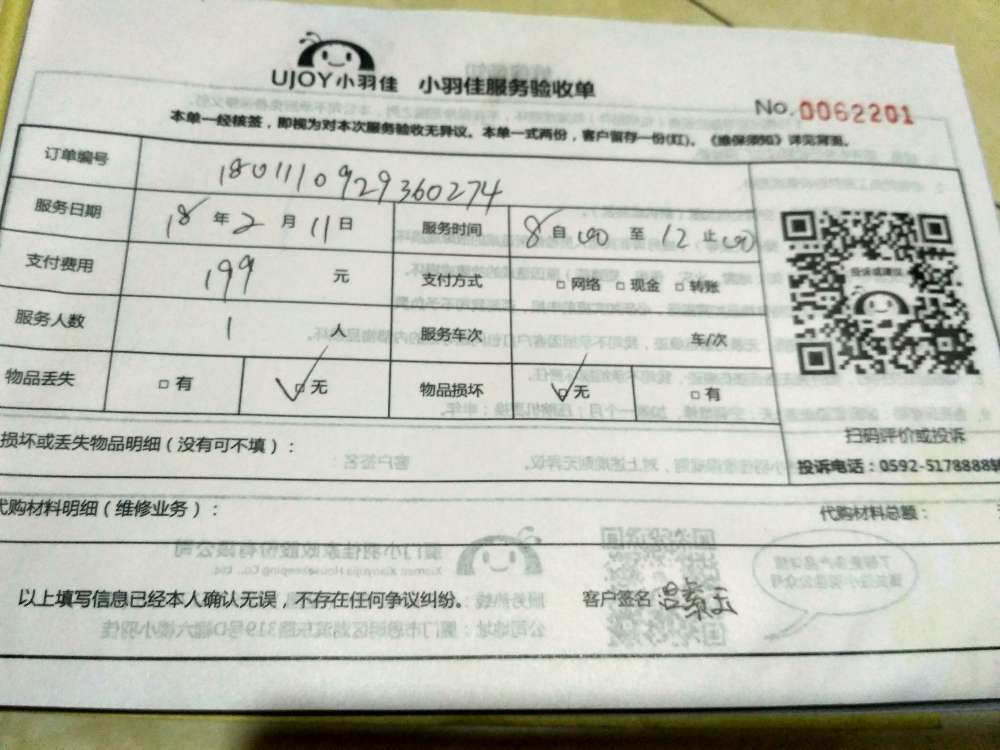 UJOY小羽佳 小羽佳服务验收单
No. 0062201
本单一经核签，即视为对本次服务验收无异议。本单一式两份，客户留存一份(红)。《维保须知》详见背面。
订单编号 180111092936027​4
服务日期 18 年 2 月 11 日 服务时间 8 自 00 至 12 止 00
支付费用 199 元 支付方式 □ 网络 □ 现金 □ 转账
服务人数 1 人 服务车次 车/次
物品丢失 □ 有 ☑ 无 物品损坏 ☑ 无 □ 有
投诉或建议
扫码评价或投诉
投诉电话：0592-5178888转
损坏或丢失物品明细（没有可不填）：
代购材料明细（维修业务）： 代购材料总额：
以上填写信息已经本人确认无误，不存在任何争议纠纷。 客户签名